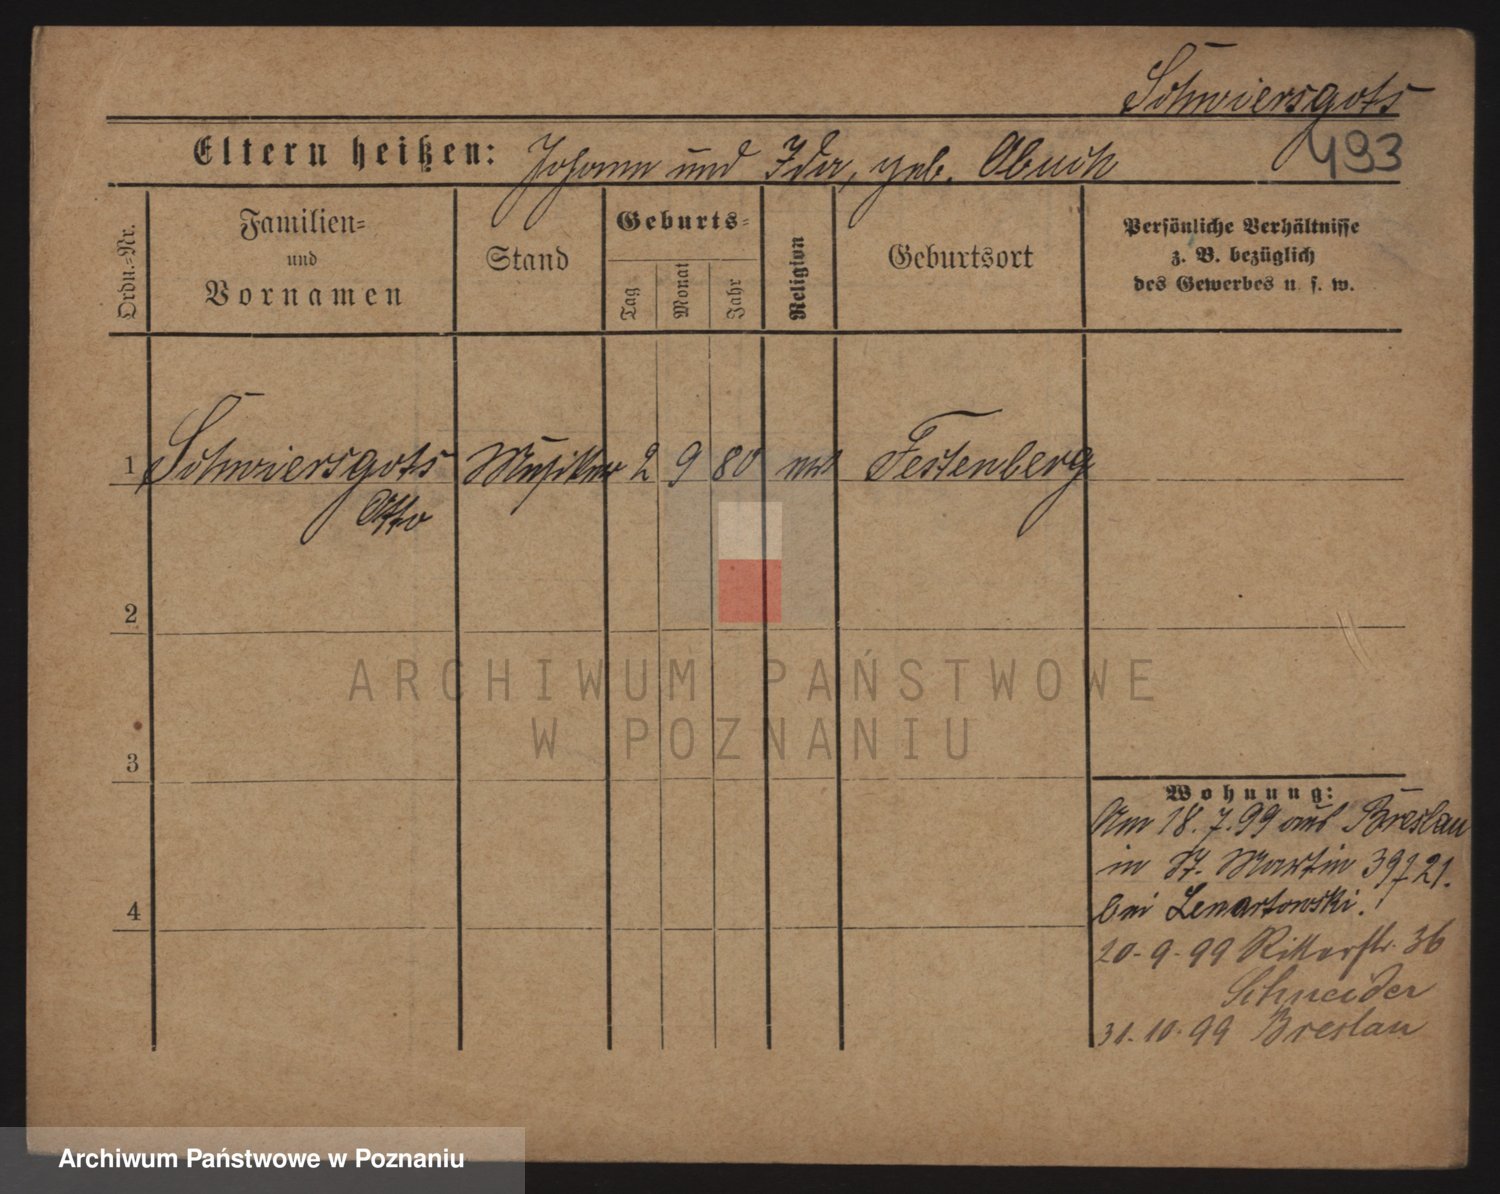 Schwiersgots
493
Eltern heißen: Johann und Ida, geb. Abuch
Ordn.-Nr.
Familien-
und
Vornamen
Stand
Geburts-
Tag
Monat
Jahr
Religion
Geburtsort
Persönliche Verhältnisse
z. B. bezüglich
des Gewerbes u. s. w.
1 Schwiersgots Musiker 2 9 80 Festenberg
Otto
2
3
4
Wohnung:
Am 18.7.99 aus Breslau
in St. Martin 39 21.
bei Lenartowski.
20-9-99 Ritterstr. 36
Schneider
31-10-99 Breslau
ARCHIWUM PAŃSTWOWE
W POZNANIU
Archiwum Państwowe w Poznaniu